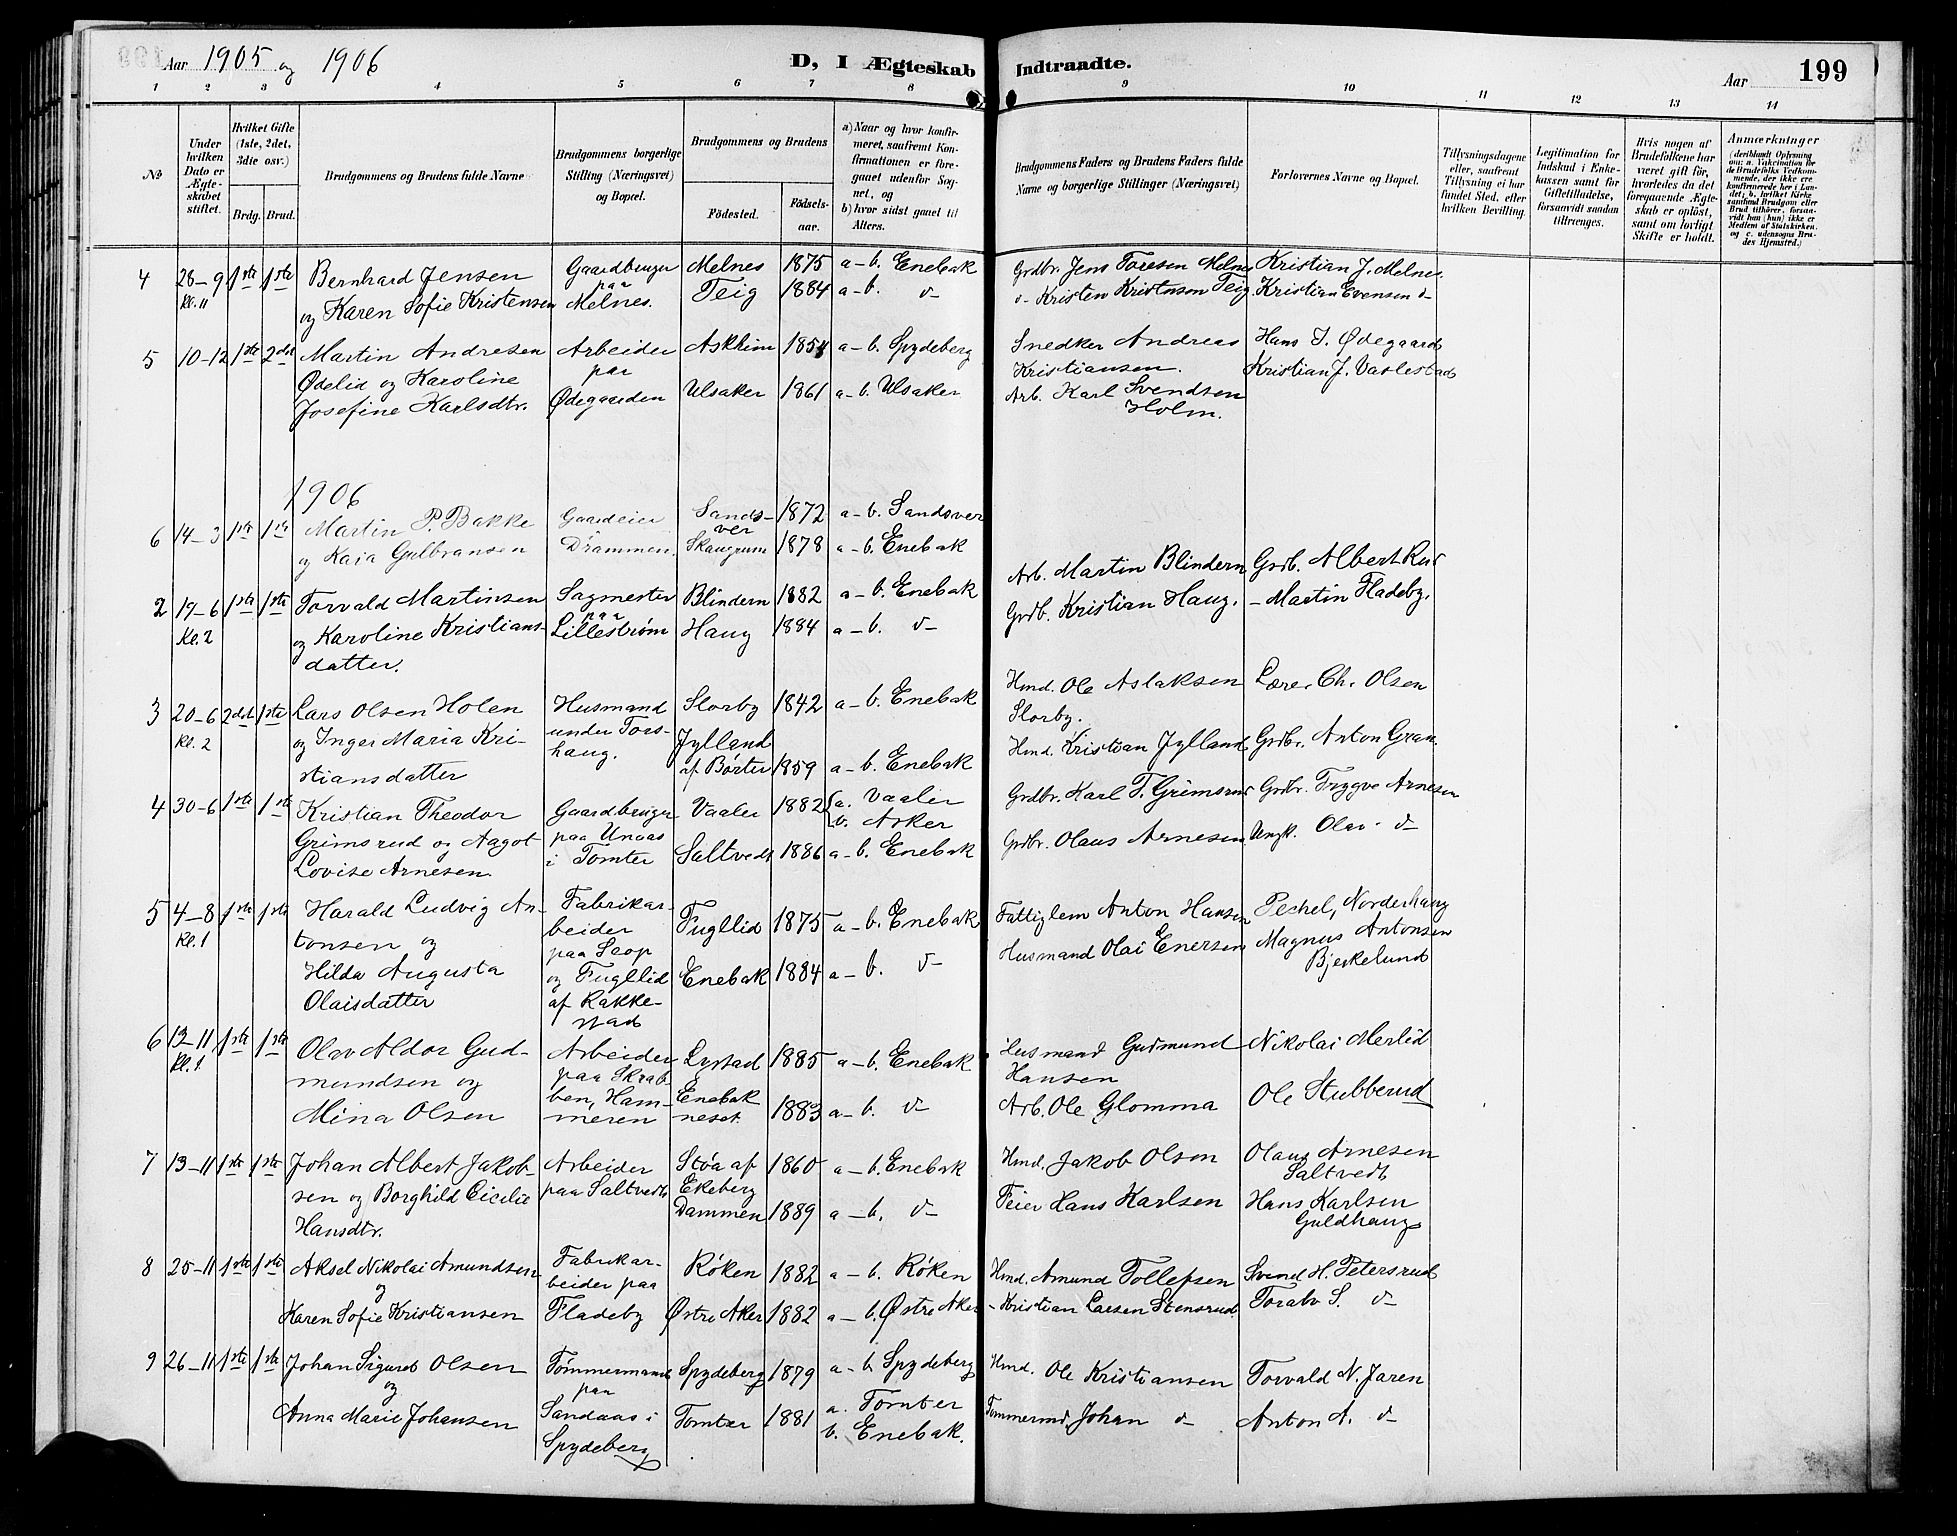 Aar 1905 og 1906
D, I Ægteskab Indtraadte.
Aar
199
1 2 3 4 5 6 7 8 9 10 11 12 13 14
№
Under hvilken Dato er Ægteskabet stiftet.
Hvilket Gifte (1ste, 2det, 3die osv.)
Brdg. Brud.
Brudgommens og Brudens fulde Navne
Brudgommens borgerlige Stilling (Næringsvei) og Bopæl.
Brudgommens og Brudens
Födested.
Födsels-aar.
a) Naar og hvor konfirmeret, saafremt Konfirmationen er foregaaet udenfor Sognet, og
b) hvor sidst gaaet til Alters.
Brudgommens Faders og Brudens Faders fulde Navne og borgerlige Stillinger (Næringsvei)
Forlovernes Navne og Bopæl.
Tillysningsdagene eller, saafremt Tillysning ei har fundet Sted, efter hvilken Bevilling.
Legitimation for Indskud i Enkekassen samt for Giftetilladelse, forsaavidt saadan tiltrænges.
Hvis nogen af Brudefolkene har været gift før, hvorledes da det foregaaende Ægteskab er oplöst, samt om lovligt Skifte er holdt.
Anmærkninger
(deriblandt Oplysning om: a. Vakcination for de Brudefolks Vedkommende, der ikke ere konfirmerede her i Landet; b. hvilket Kirkesamfund Brudgom eller Brud tilhörer, forsaavidt han (hun) ikke er Medlem af Statskirken, og c. udensogns Brudes Hjemsted.)
4 28-9 1ste 1ste Bernhard Jensen Gaardbruger Melnes 1875 a-b. Enebak Grdbr. Jens Toresen Melnes Kristian J. Melnes.
Kl. 11 og Karen Sofie Kristensen paa Melnes. Teig 1884 a-b. d- d- Kristen Kristensen Teig. Kristian Evensen d-
5 10-12 1ste 2det Martin Andresen Arbeider Askhim 1854 a-b. Spydeberg Snedker Andreas Hans J. Ødegaard
Ødelid og Karoline paa Kristiansen. Kristian J. Vaslestad
Josefine Karlsdtr. Ødegaarden Ulsaker 1861 a-b. Ulsaker Arb. Karl Svendsen
Holm.
1906
6 14-3 1ste 1ste Martin P. Bakke Gaardeier Sandsver 1872 a-b. Sandsver
og Kaia Gulbransen Drammen. Skaugrum 1878 a-b. Enebak
2 19-6 1ste 1ste Torvald Martinsen Sagmester Blindern 1882 a-b. Enebak Arb. Martin Blindern Grdb. Albert Rud
Kl. 2 og Karoline Kristians- paa Lillestrøm Haug 1884 a-b. d- Grdb. Kristian Haug. - Martin Fladeby.
datter.
3 20-6 2det 1ste Lars Olsen Holen Husmand Slorby 1842 a-b. Enebak Hmd. Ole Aslaksen Lærer Ch. Olsen
Kl. 2 og Inger Maria Kri- under Tors- Jylland Slorby.
stiansdatter haug. af Børter 1859 a-b. Enebak Hmd. Kristian Jylland Grdbr. Anton Gran.
4 30-6 1ste 1ste Kristian Theodor Gaardbruger Vaaler 1882 a. Vaaler Grdbr. Karl T. Grimsrud Grdbr. Trygve Arnesen
b. Asker
Grimsrud og Aagot paa Unaas Saltvedt 1886 a-b. Enebak Grdbr. Olaus Arnesen Ungk. Olav d-
Lovise Arnesen i Tomter
5 4-8 1ste 1ste Harald Ludvig An- Fabrikar- Fugllid 1875 a-b. Enebak Fattiglem Anton Hansen Pechel, Norderhaug
Kl. 1 tonsen og beider Husmand Olai Enersen Magnus Antonsen
Hilda Augusta paa Saop Bjerkelund
Olaisdatter og Fugllid Enebak 1884 a-b. d-
af Rakke-
stad
6 13-11 1ste 1ste Olav Aldor Gud- Arbeider Lystad 1885 a-b. Enebak Husmand Gudmund Nikolai Merlid
Kl. 1 mundsen og paa Skrab- Hansen
Mina Olsen ben, Ham- Enebak 1883 a-b. d- Arb. Ole Glomma Ole Stubberud
meren neset.
7 13-11 1ste 1ste Johan Albert Jakob- Arbeider Støa af 1860 a-b. Enebak Hmd. Jakob Olsen Olaus Arnesen
sen og Borghild Cicilie paa Saltvedt Ekeberg Saltvedt
Hansdtr. Dammen 1889 a-b. d- Feier Hans Karlsen Hans Karlsen
Guldhaug
8 25-11 1ste 1ste Aksel Nikolai Amundsen Fabrikar- Røken 1882 a-b. Røken Hmd. Amund Tollefsen Svend H. Petersrud
og beider paa
Karen Sofie Kristiansen Fladeby Østre Aker 1882 a-b. Østre Aker - Kristian Larsen Stensrud. Toralv S. d-
9 26-11 1ste 1ste Johan Sigurd Olsen Tømmermand Spydeberg 1879 a-b. Spydeberg Hmd. Ole Kristiansen Torvald N. Jaren
og paa
Anna Marie Johansen Sandaas i Tomter 1881 a. Tomter Tømmermd. Johan d- Anton A. d-
Spydeberg b. Enebak.